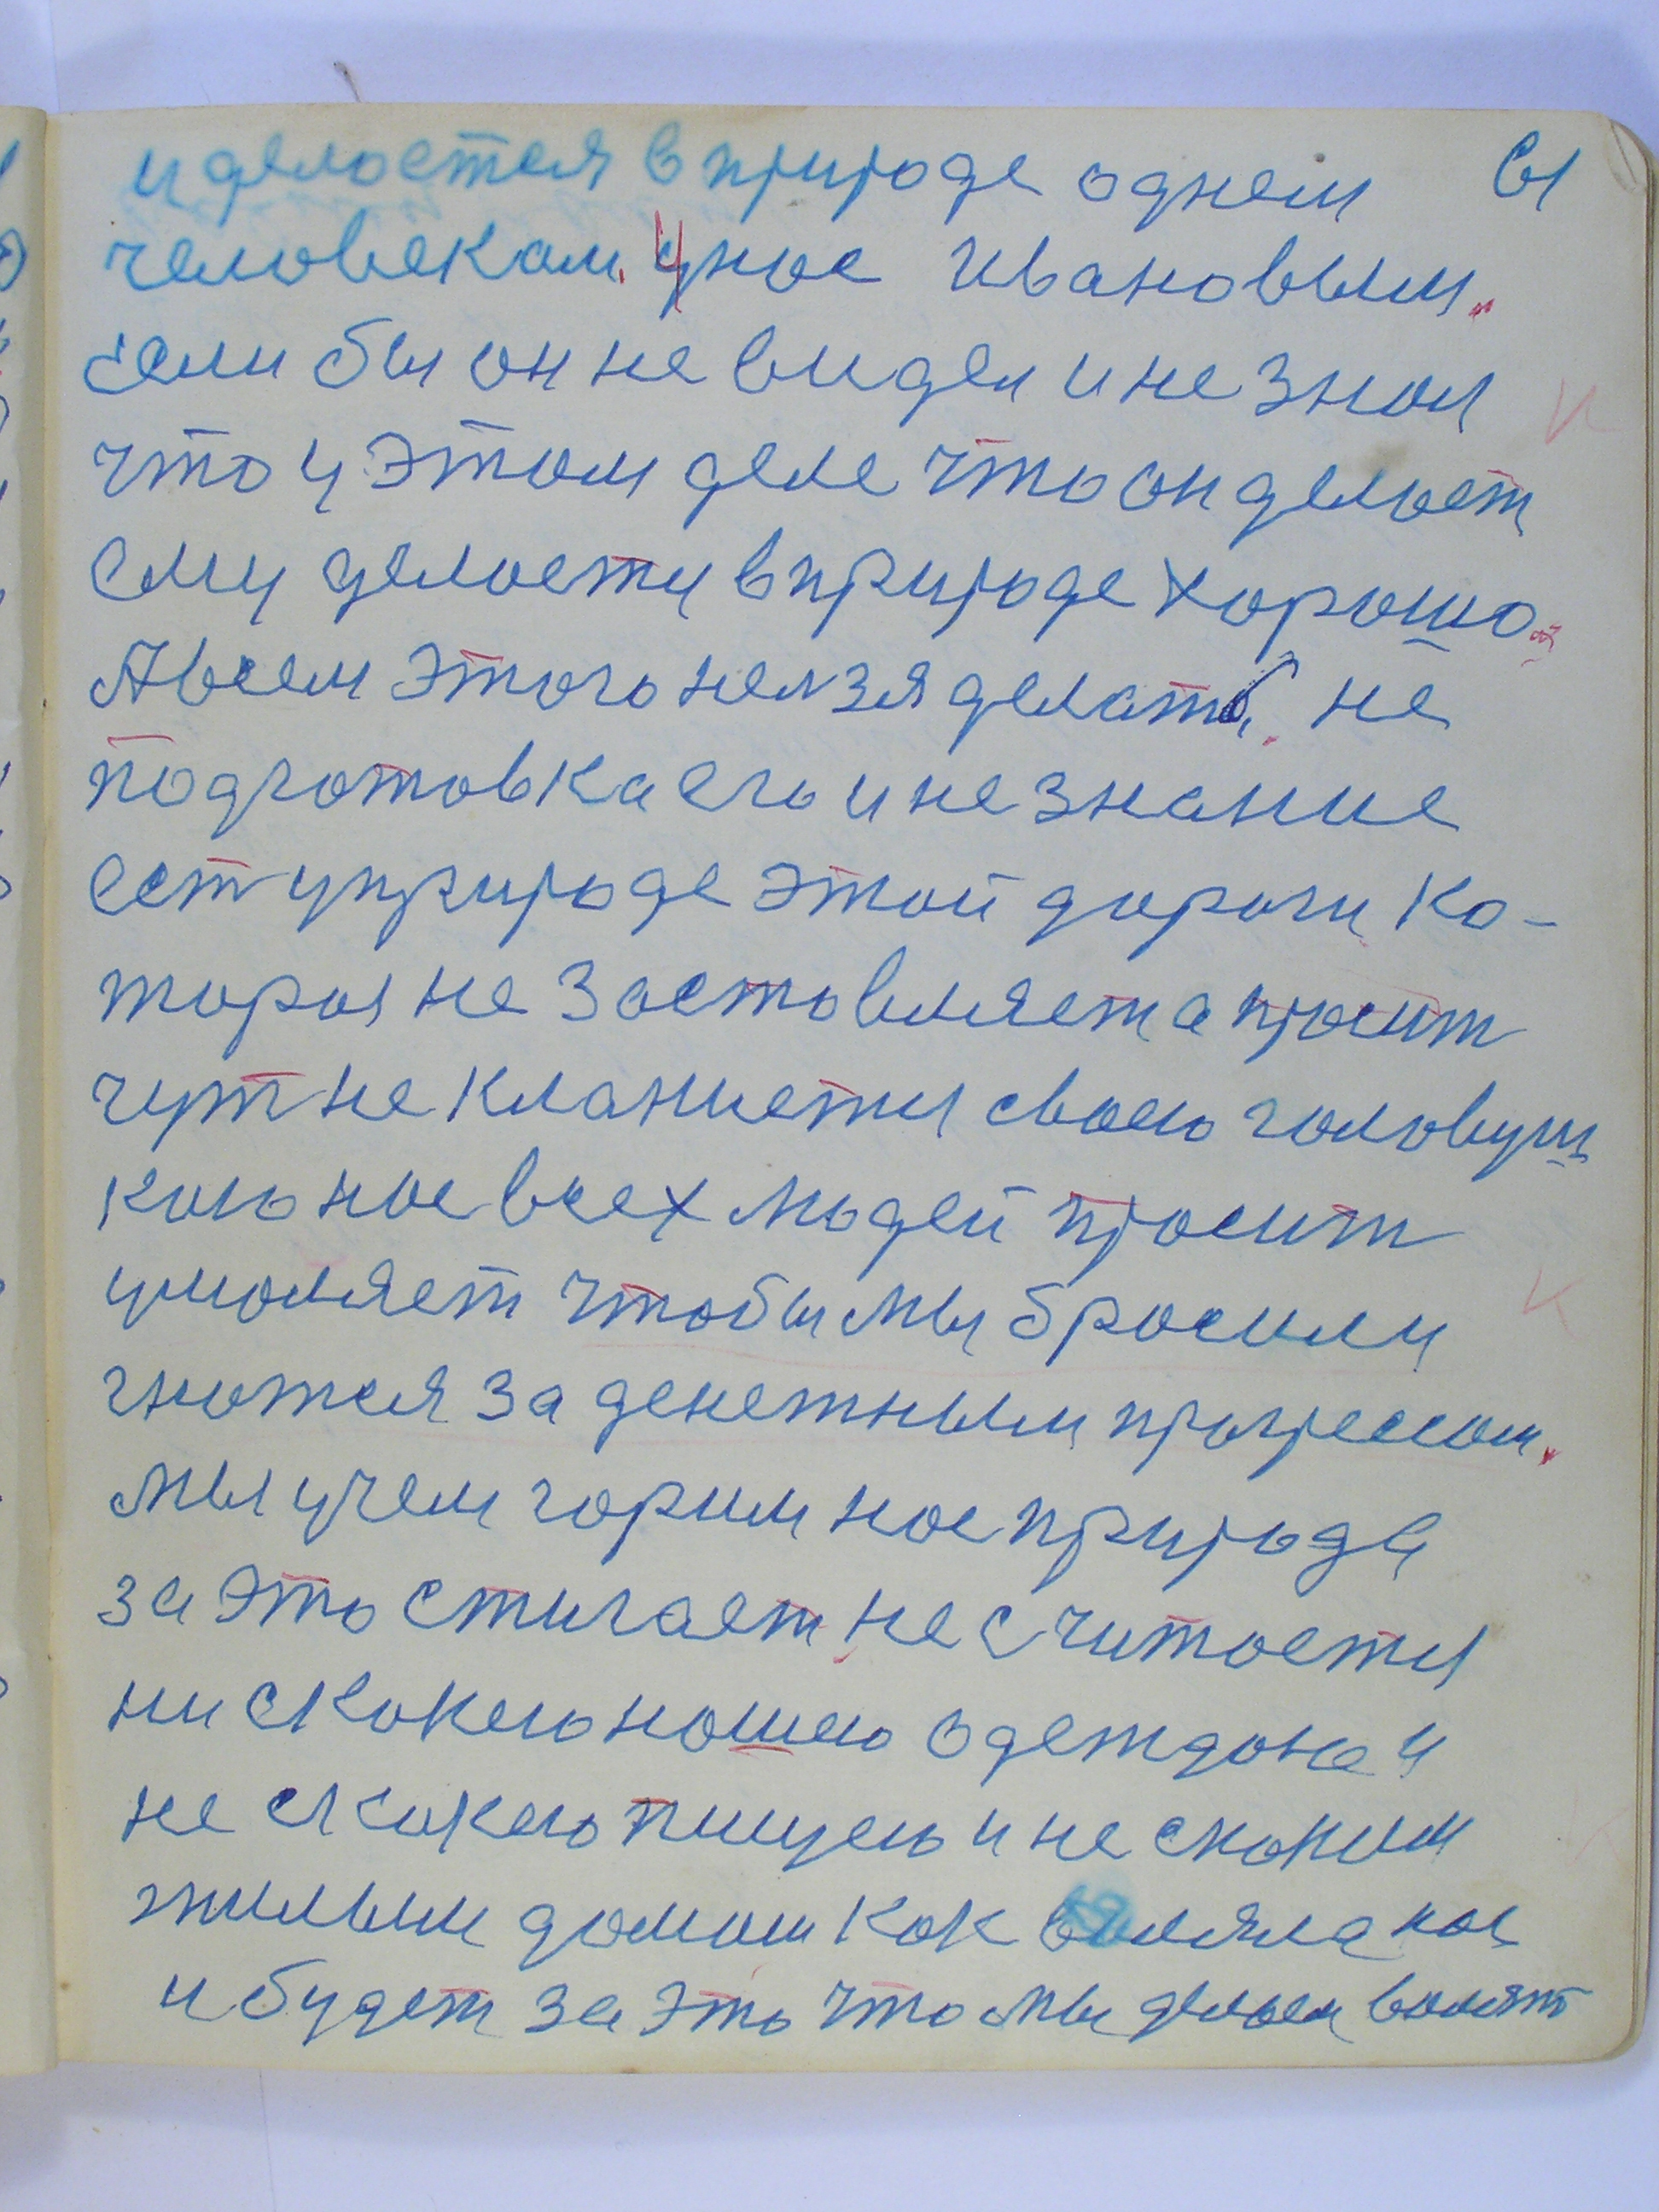 и делается в природе однем 61
человекам. у нас Ивановым.
если бы он не видел и не знал
что у этом деле что он делает
ему делается в природе хорошо.
А всем этого нелзя делать, не
подготовка его и не знание
ест у природе этой дороги ко-
торая не заставляет а просит
чут не кланиется своею головуш
кою нас всех людей просит
умоляет чтобы мы бросили
гнатся за денежным прогрессом.
мы учем горим нас природа
за это стигает, не считается
ни скакею нашею одеждою и
не скакею пищею и не скаким
жилым домом как валяла нас
и будет за это что мы делаем валят